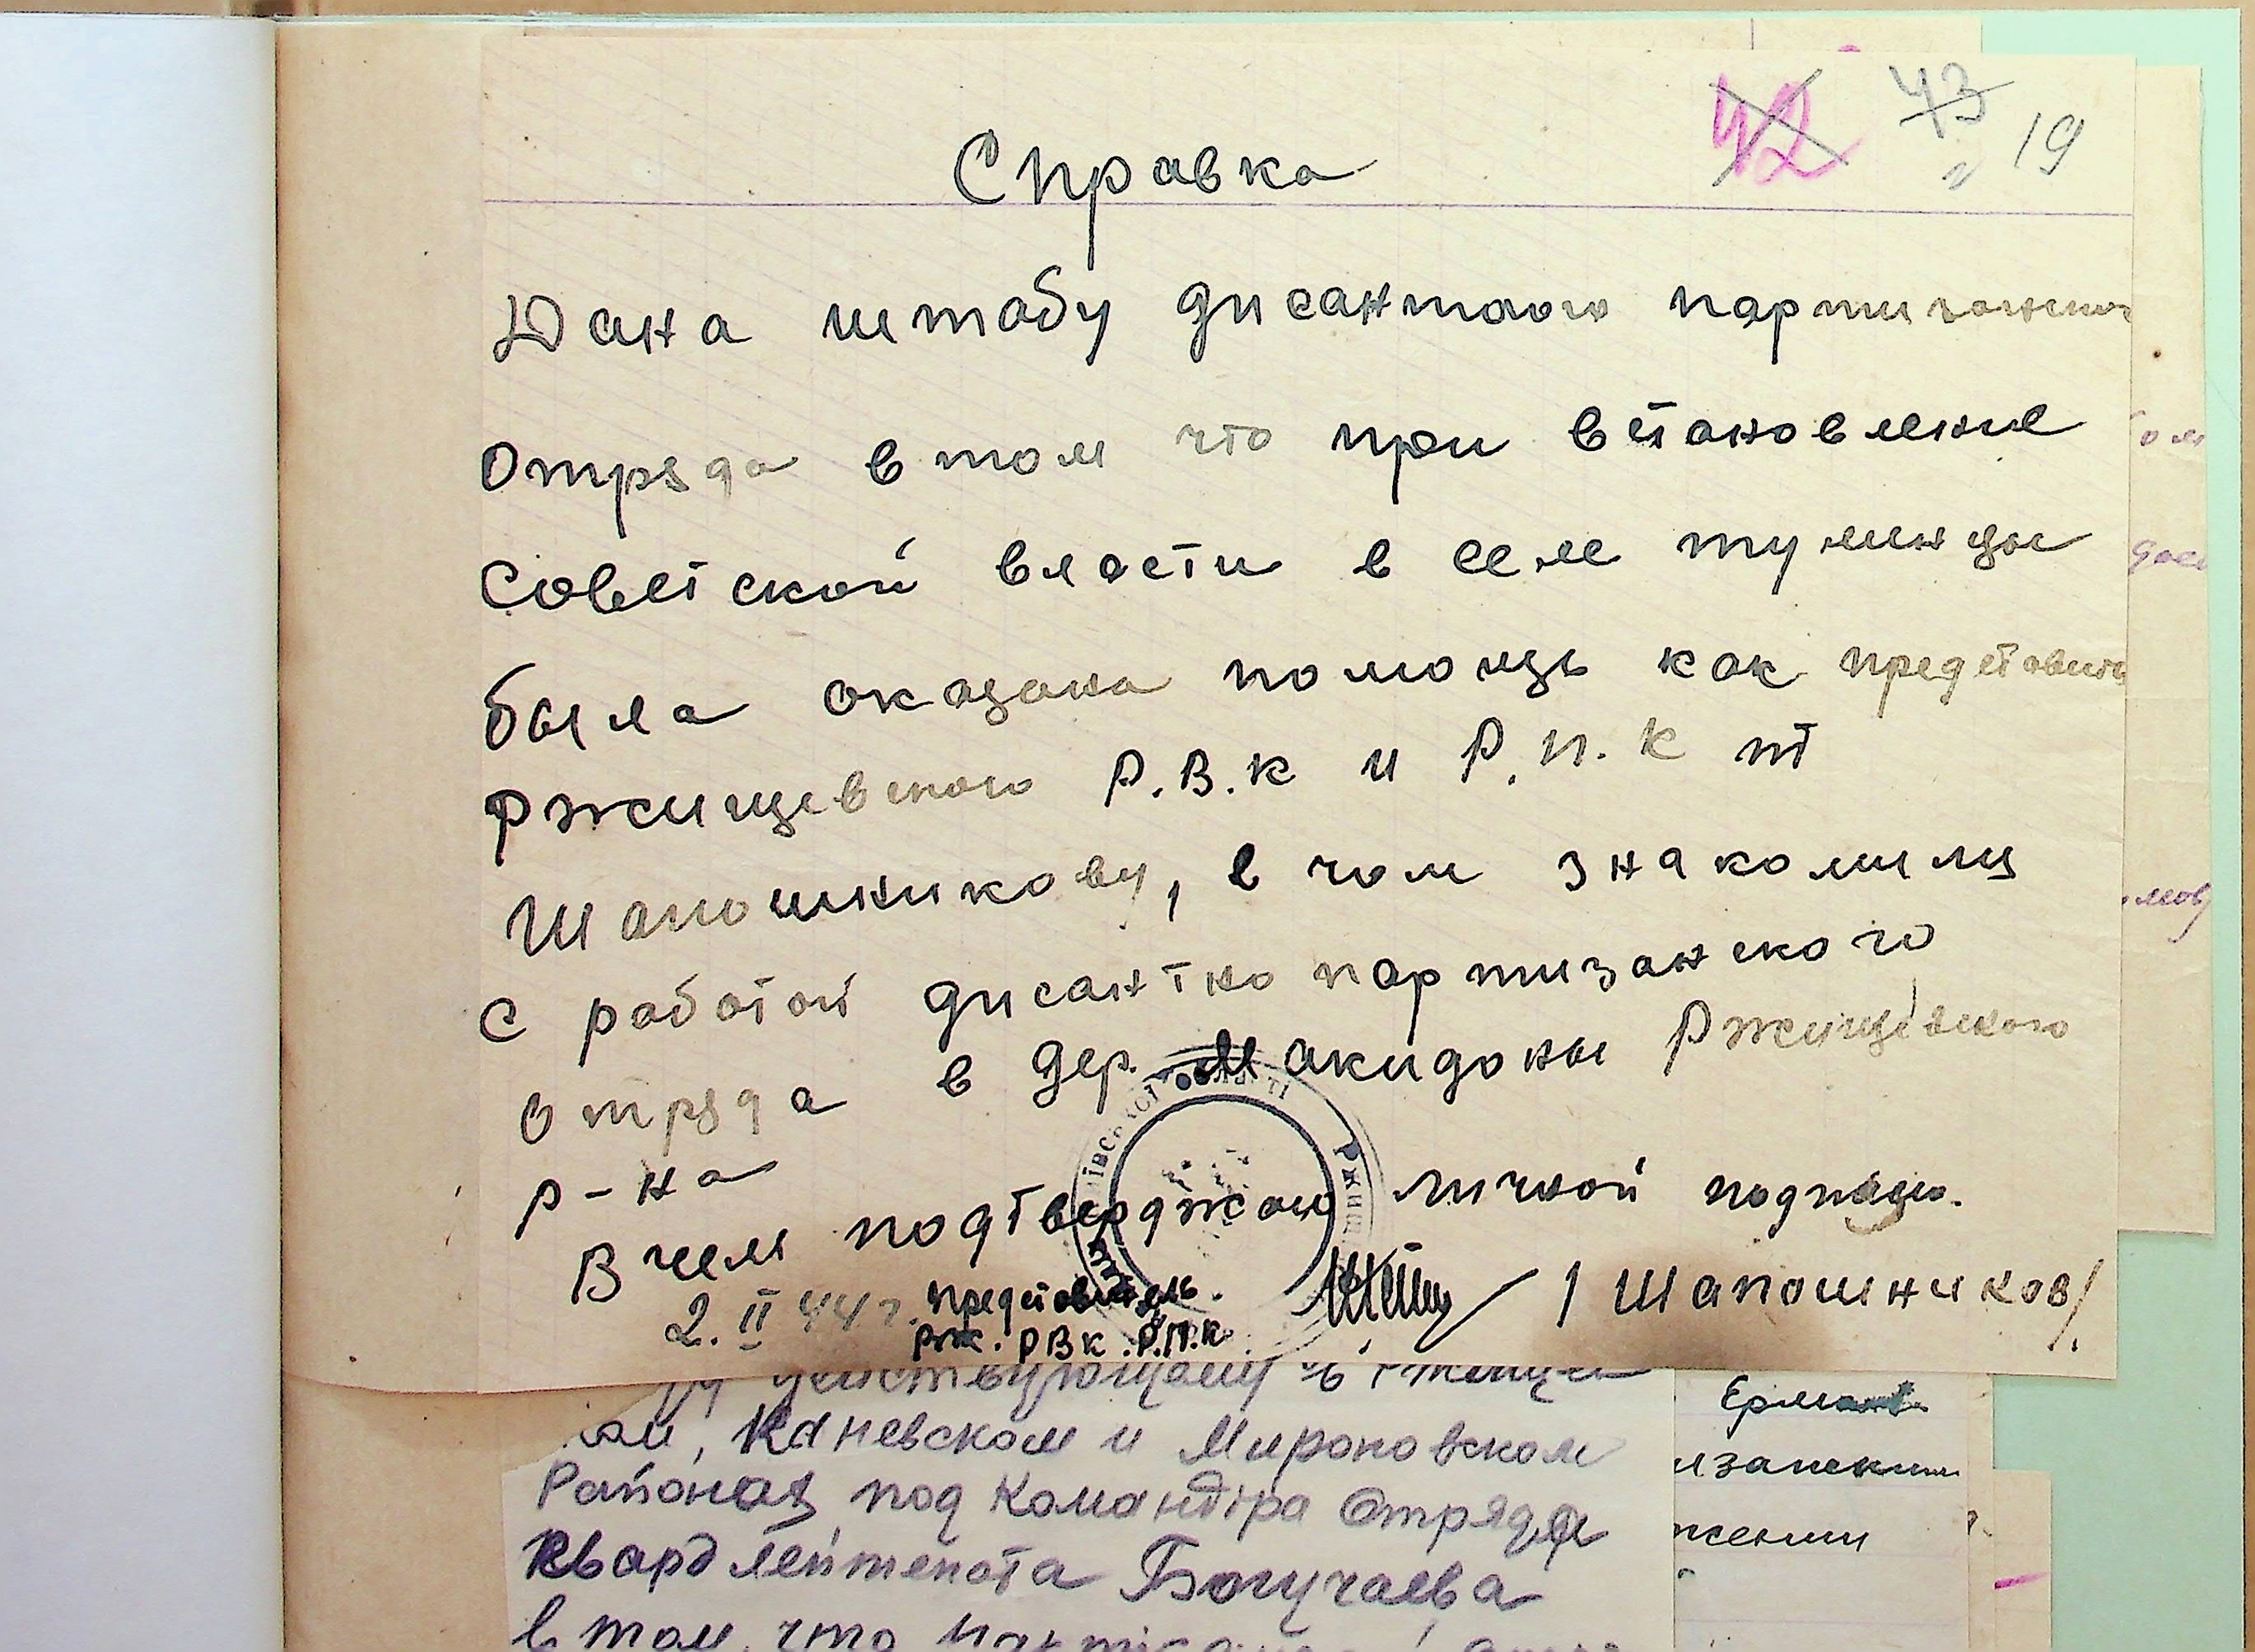 42 43
19
Справка
Дана штабу дисантого партизанског
отряда в том что при встановление
советской власти в селе туминцы
была оказана помощь как представите
Ржищевского Р.В.К и Р.П.К тт
Шапошникову, в чом знакомилц
с работой дисантно партизанского
отряда в дер. Макидоны Ржищевского
р-на
В чем подтверджаю личной подписю.
2.II 44 г. представитель. / Шапошников/.
рж. РВК. Р.П.К
Ржищ
действующему в Ржищев
Каневском и Мироновском
Районах под Командіра Отряда
Гвард лейтената Богучаева
в том, что
Ерма
изански
жении